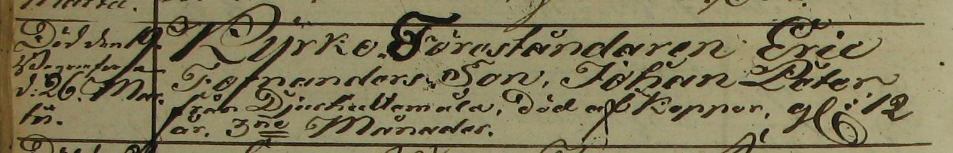 Död den 19.
d: 26. Mar-
tii.
Kyrko Föreståndaren Eric
Fornanders Son, Johan Peter
från Djurhultemåla, död af Koppor, gl: 12
år. 3ne Månader.